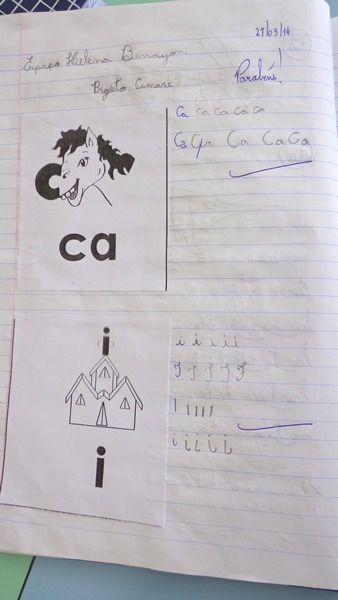 27/03/14.
Espaço Helena Benayon.
Parabéns!
Projeto Cumaré!
Ca ca ca ca ca
Ca Ca Ca Ca Ca
C
ca
i
i i i i i
I I I I I
I I I I I
i i i i i
i